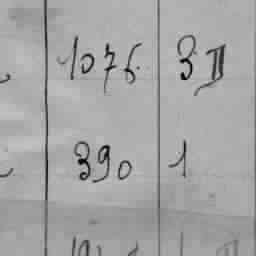 1076 3 II
390 1